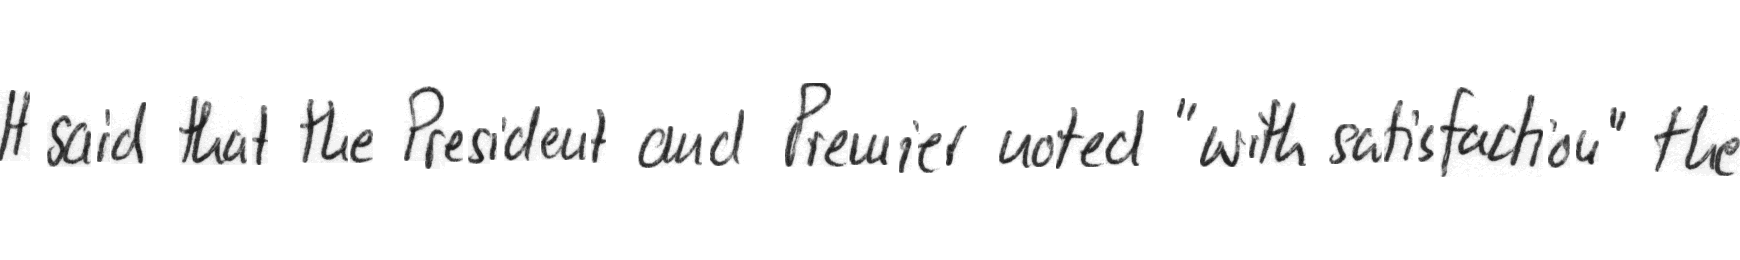 It said that the President and Premier noted "with satisfaction" the